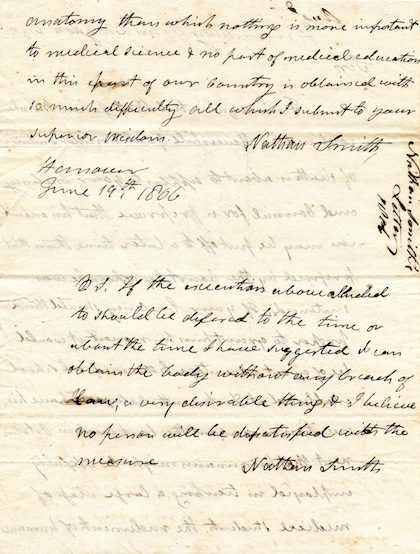 anatomy than which nothing is more important
to medical science & no part of medical education
in this part of our Country is obtained with
so much difficulty all which I submit to your
superior wisdom
Nathan Smith
Hanover
June 19th. 1806
P S. If the execution above alluded
to should be defered to the time or
about the time I have suggested I can
obtain the body without any breach of
law, a very desirable thing, & I believe
no person will be dissatisfied with the
measure
Nathan Smith
Nathan Smith's
Letter
1806